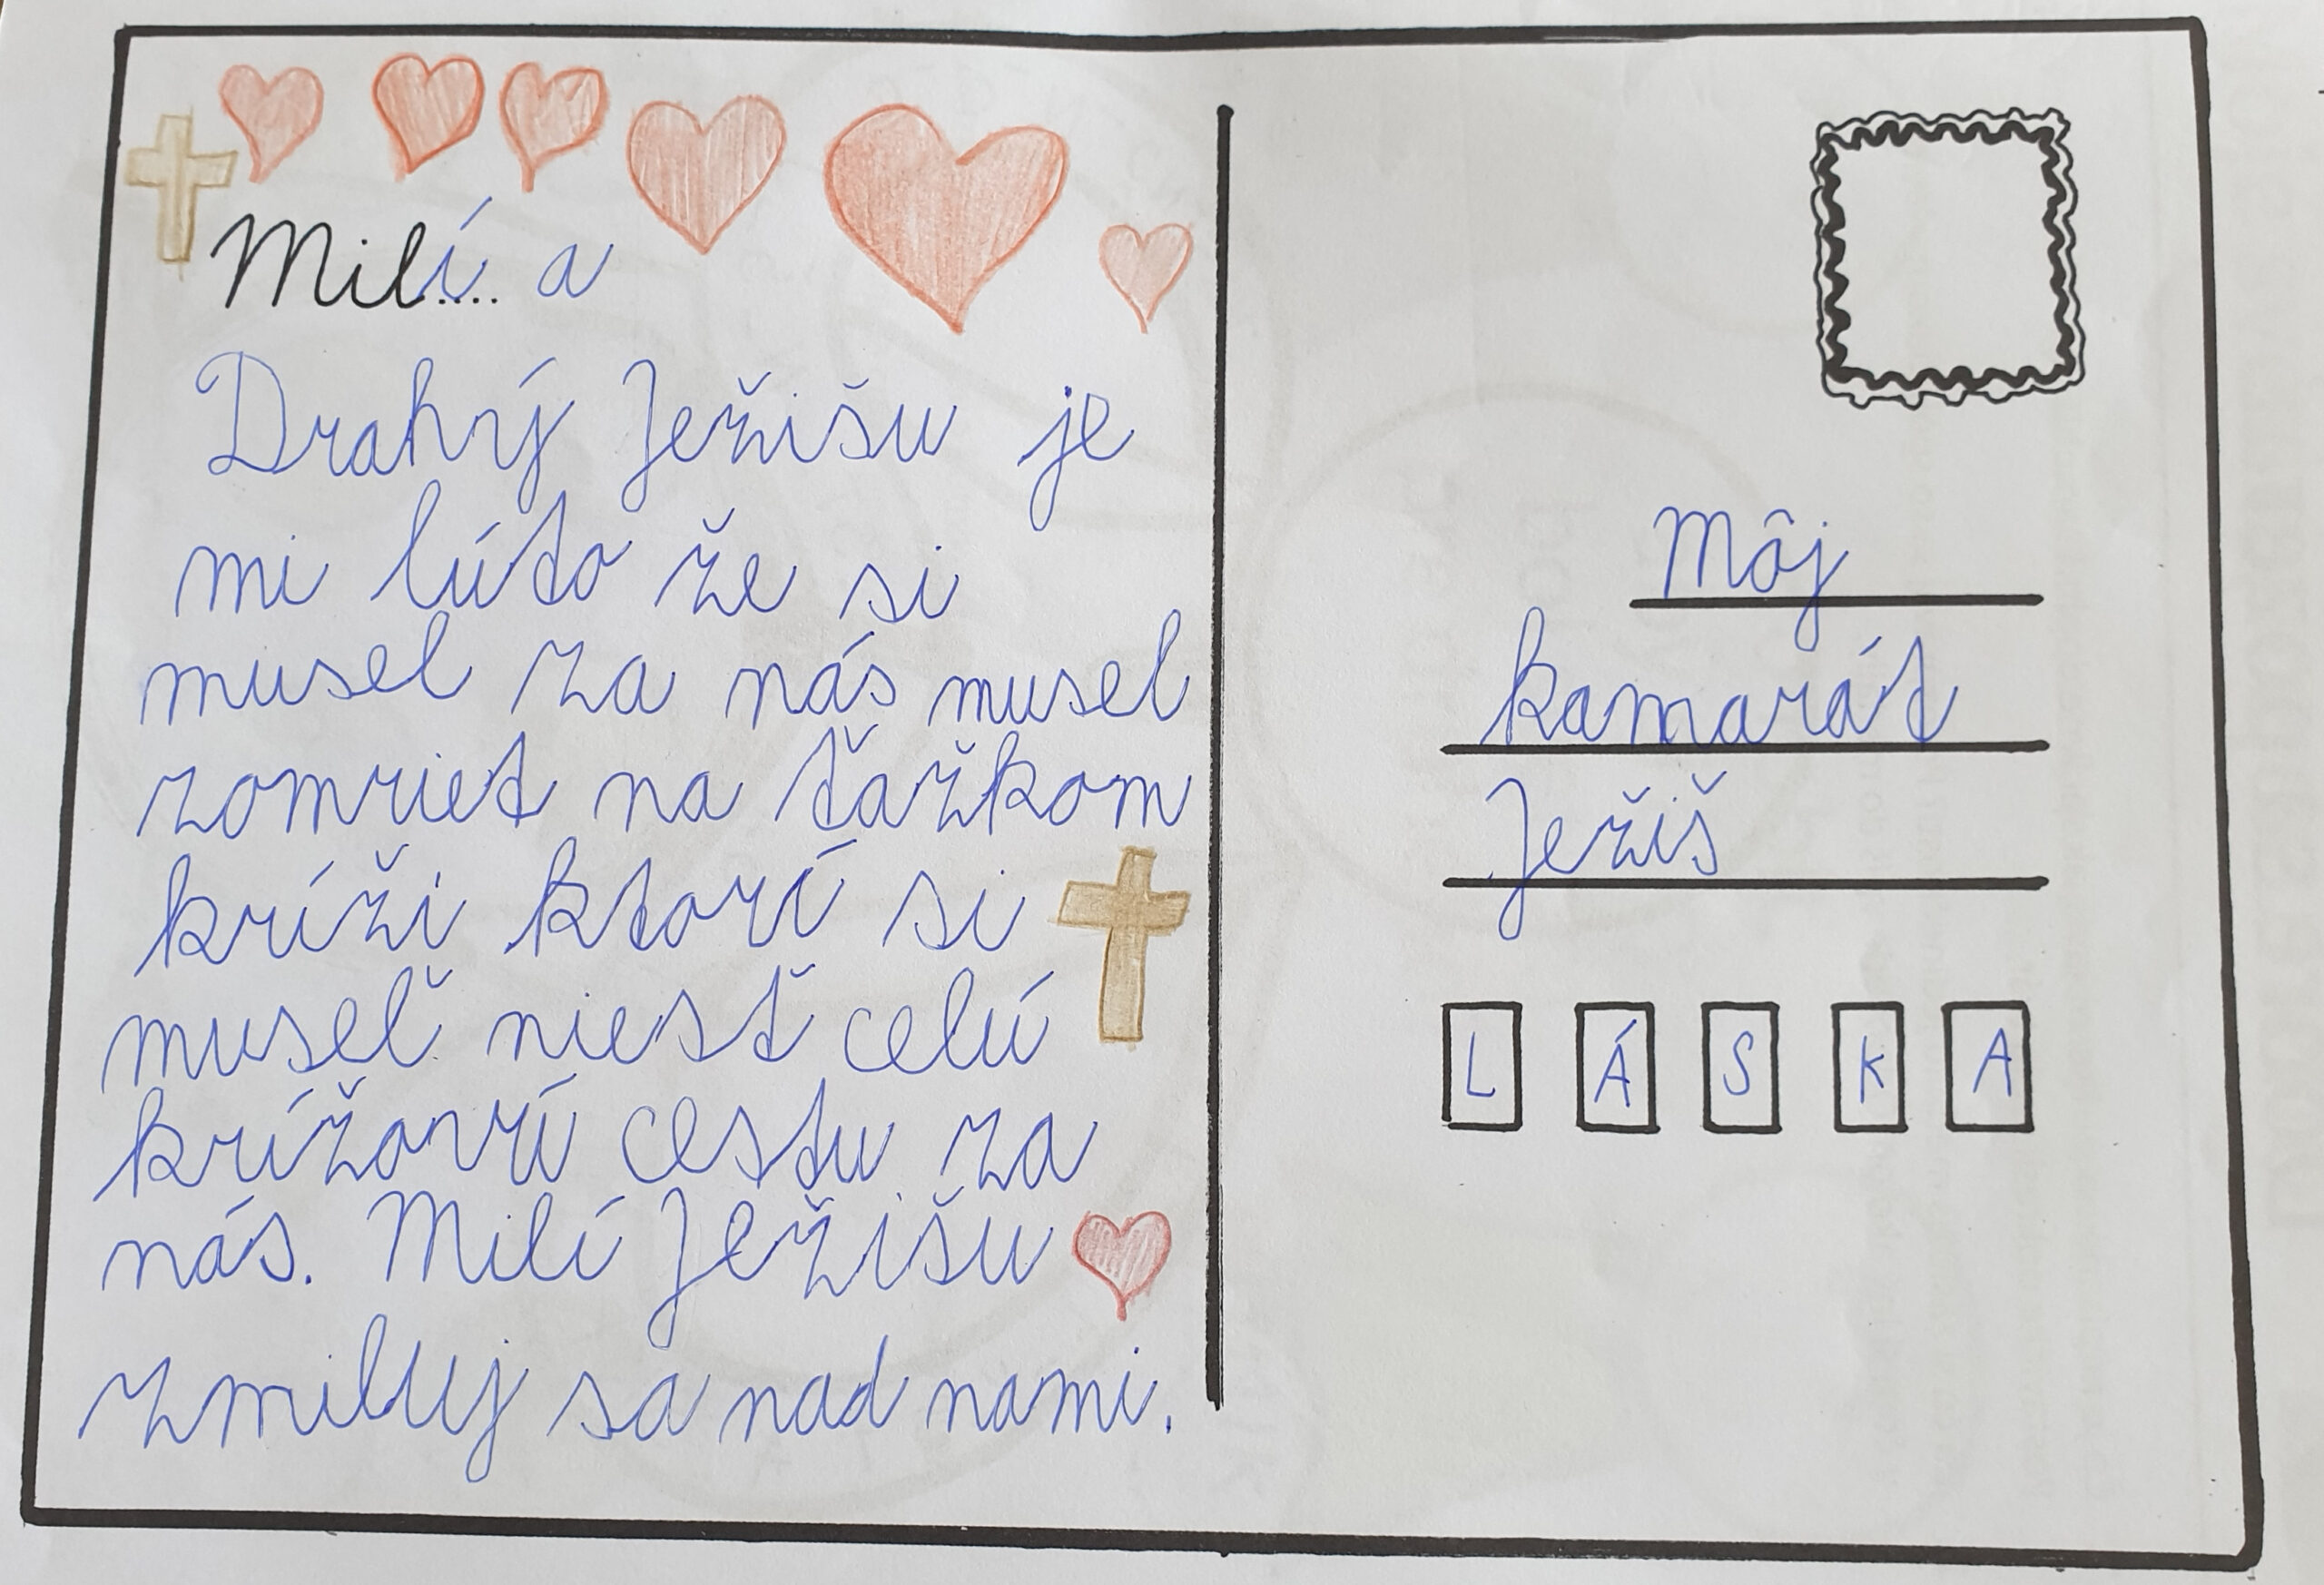 Milí.... a
Drahý Ježišu je
mi lúto že si
musel za nás musel
zomriet na ťažkom
kríži ktorí si
museľ niesť celú
krížovú cestu za
nás. Milí Ježišu
zmiluj sa nad nami.
Môj
kamarát
Ježiš
L Á S K A